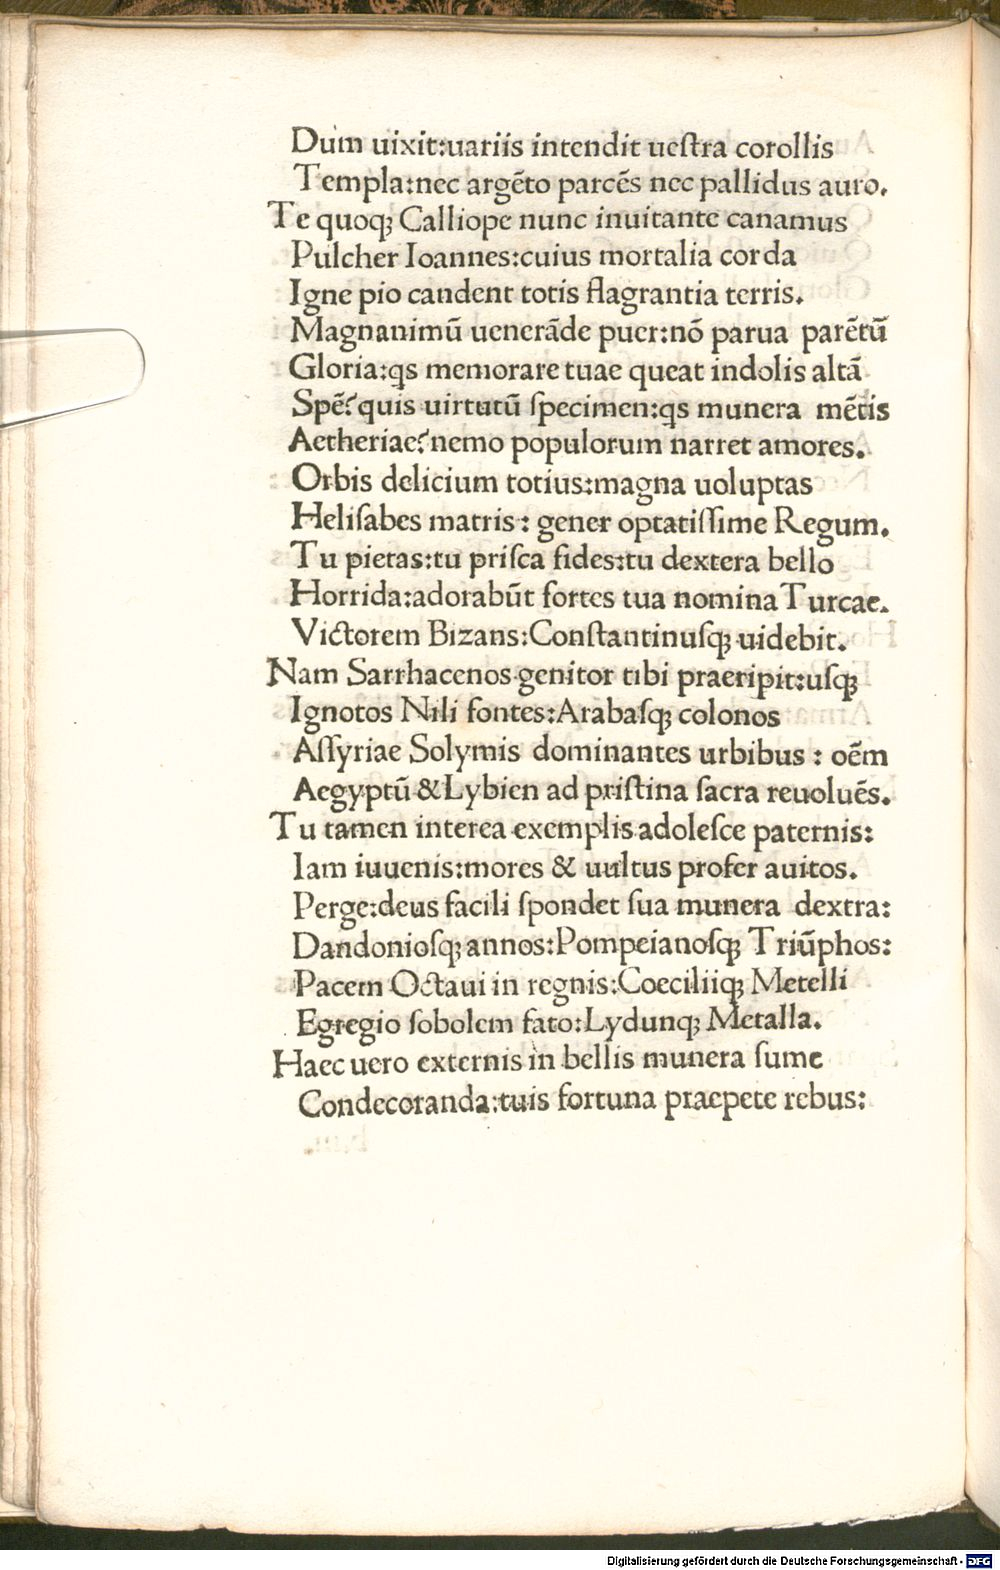 Dum uixit:uariis intendit ueſtra corollis
Templa:nec argēto parcēs nec pallidus auro.
Te quoqꝫ Calliope nunc inuitante canamus
Pulcher Ioannes:cuius mortalia corda
Igne pio candent totis flagrantia terris.
Magnanimū uenerāde puer:nō parua parētū
Gloria:qs memorare tuae queat indolis altā
Spē?quis uirtutū ſpecimen:qs munera mētis
Aetheriae?nemo populorum narret amores.
Orbis delicium totius:magna uoluptas
Heliſabes matris: gener optatiſſime Regum.
Tu pietas:tu priſca fides:tu dextera bello
Horrida:adorabūt fortes tua nomina Turcae.
Victorem Bizans:Conſtantinuſqꝫ uidebit.
Nam Sarrhacenos genitor tibi praeripit:uſqꝫ
Ignotos Nili fontes:Arabaſqꝫ colonos
Aſſyriae Solymis dominantes urbibus: oēm
Aegyptū &Lybien ad priſtina ſacra reuoluēs.
Tu tamen interea exemplis adoleſce paternis:
Iam iuuenis:mores & uultus profer auitos.
Perge:deus facili ſpondet ſua munera dextra:
Dandonioſqꝫ annos:Pompeianoſqꝫ Triūphos:
Pacem Octaui in regnis:Coeciliiqꝫ Metelli
Egregio ſobolem fato:Lydunqꝫ Metalla.
Haec uero externis in bellis munera ſume
Condecoranda:tuis fortuna praepete rebus:
Digitalisierung gefördert durch die Deutsche Forschungsgemeinschaft - DFG